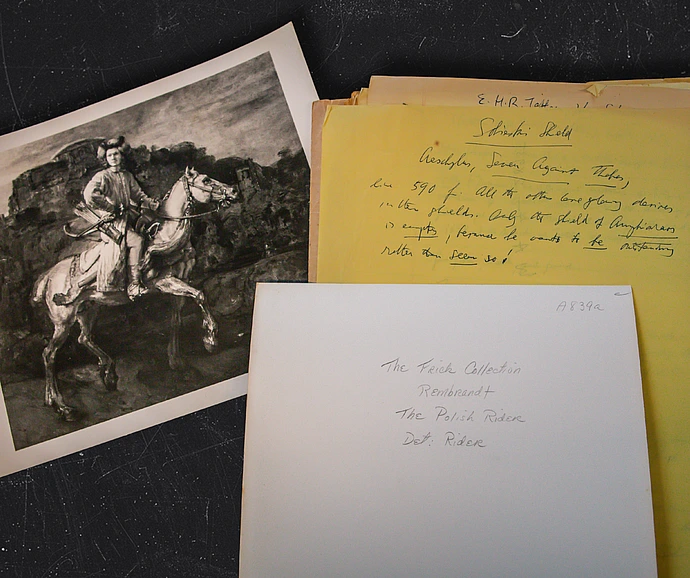 E. H. R.
Sobieski Shield
Aeschylus, Seven Against Thebes,
line 590 f. All the other have glowing devices
in their shields. Only the shield of Amphiaraos
is empty, because he wants to be outstanding
rather than seem so!
A839a
The Frick Collection
Rembrandt
The Polish Rider
Det: Rider